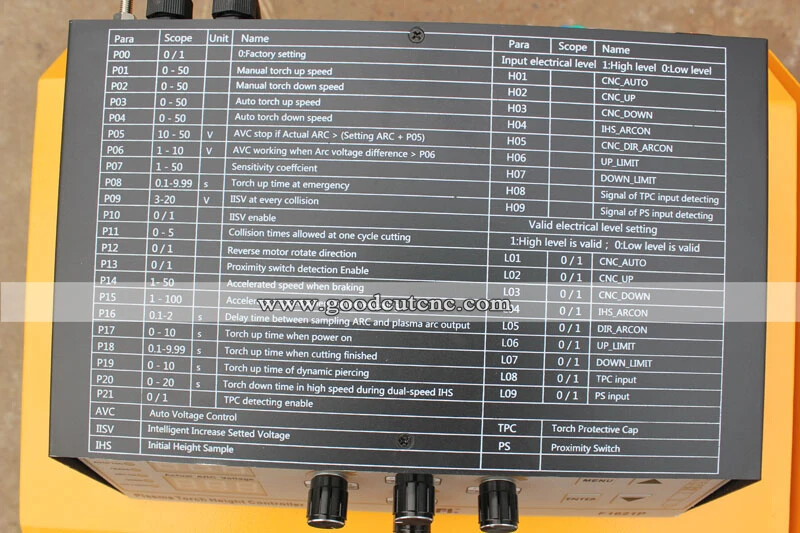 Para Scope Unit Name
P00 0 / 1 0:Factory setting
P01 0 - 50 Manual torch up speed
P02 0 - 50 Manual torch down speed
P03 0 - 50 Auto torch up speed
P04 0 - 50 Auto torch down speed
P05 10 - 50 V AVC stop if Actual ARC > (Setting ARC + P05)
P06 1 - 10 V AVC working when Arc voltage difference > P06
P07 1 - 50 Sensitivity coeffcient
P08 0.1-9.99 s Torch up time at emergency
P09 3-20 V IISV at every collision
P10 0 / 1 IISV enable
P11 0 - 5 Collision times allowed at one cycle cutting
P12 0 / 1 Reverse motor rotate direction
P13 0 / 1 Proximity switch detection Enable
P14 1 - 50 Accelerated speed when braking
P15 1 - 100
P16 0.1-2 s Delay time between sampling ARC and plasma arc output
P17 0 - 10 s Torch up time when power on
P18 0.1-9.99 s Torch up time when cutting finished
P19 0 - 10 s Torch up time of dynamic piercing
P20 0 - 20 s Torch down time in high speed during dual-speed IHS
P21 0 / 1 TPC detecting enable
AVC Auto Voltage Control
IISV Intelligent Increase Setted Voltage
IHS Initial Height Sample
Para Scope Name
Input electrical level 1:High level 0:Low level
H01 CNC_AUTO
H02 CNC_UP
H03 CNC_DOWN
H04 IHS_ARCON
H05 CNC_DIR_ARCON
H06 UP_LIMIT
H07 DOWN_LIMIT
H08 Signal of TPC input detecting
H09 Signal of PS input detecting
Valid electrical level setting
1:High level is valid ; 0:Low level is valid
L01 0 / 1 CNC_AUTO
L02 0 / 1 CNC_UP
L03 0 / 1 CNC_DOWN
L04 0 / 1 IHS_ARCON
L05 0 / 1 DIR_ARCON
L06 0 / 1 UP_LIMIT
L07 0 / 1 DOWN_LIMIT
L08 0 / 1 TPC input
L09 0 / 1 PS input
TPC Torch Protective Cap
PS Proximity Switch
www.goodcutcnc.com
Actual ARC Voltage
Plasma Torch Height Controller
MENU
ENTER
F1621P